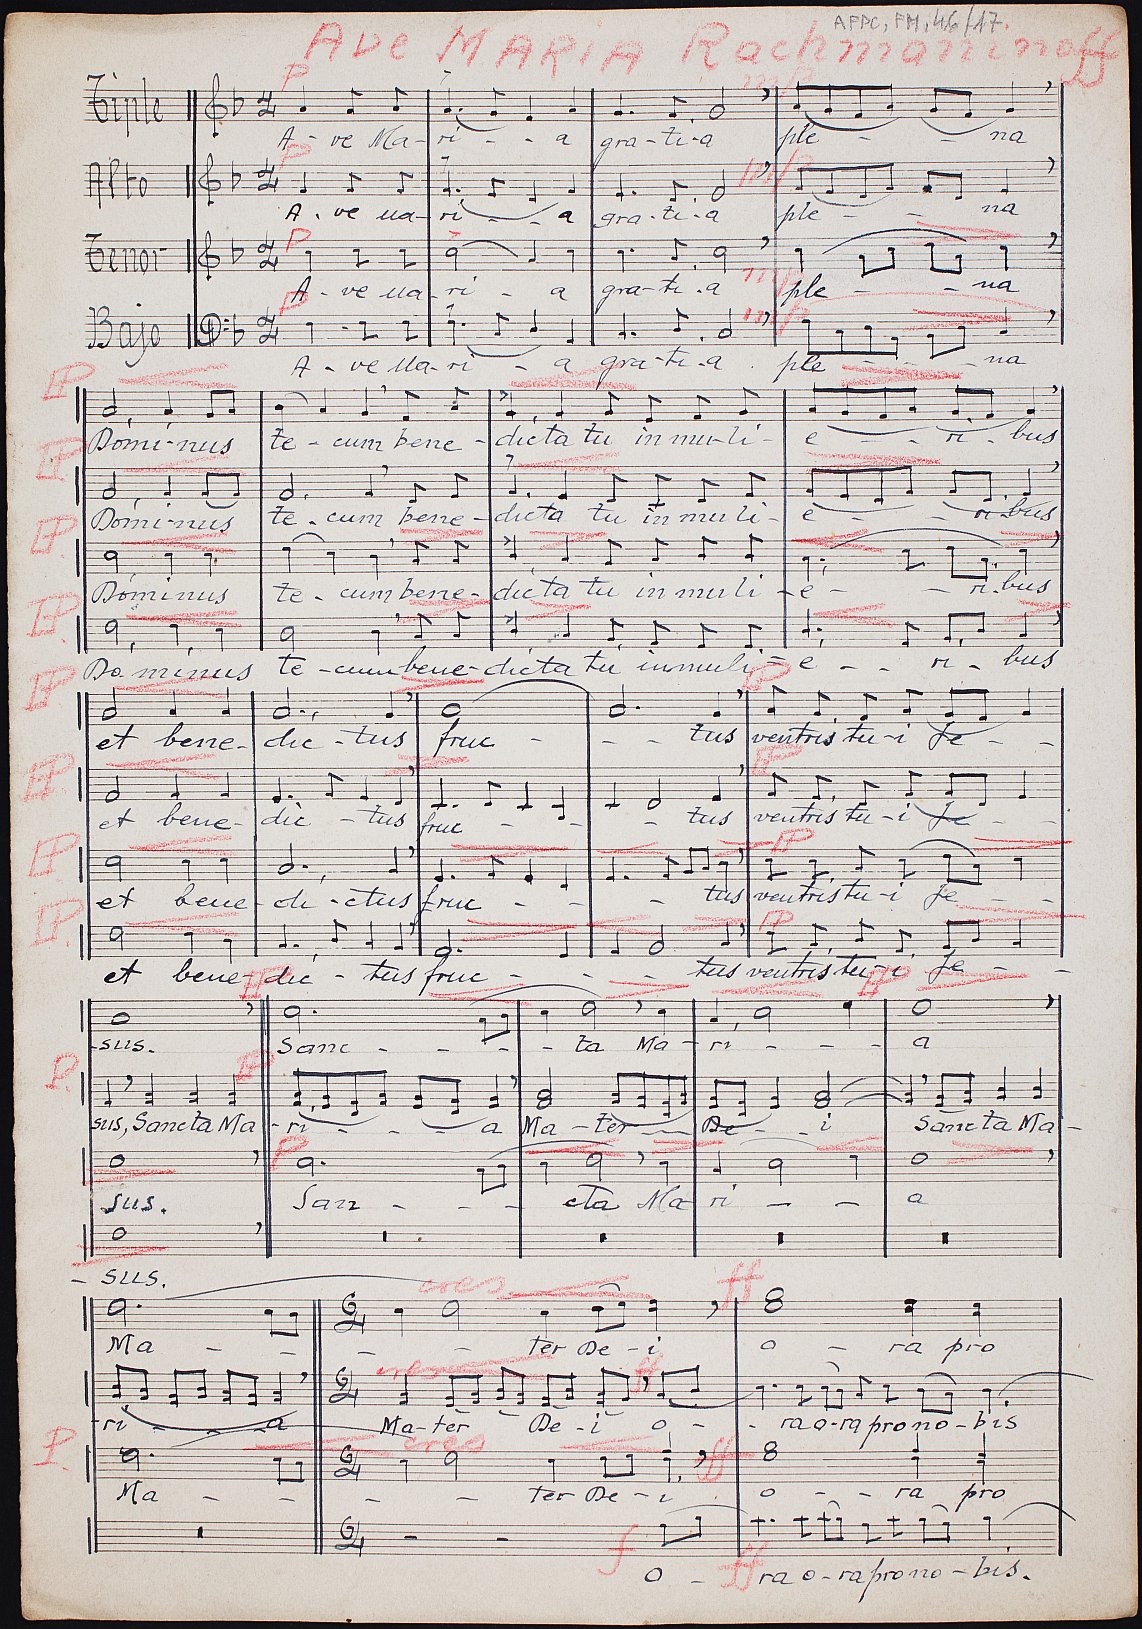 AFPC, FM, 46/17.
Ave MARIA Rachmaninoff
P mp
Tiple
A - ve Ma- ri - - a gra-ti-a ple - - na
P mp
Alto
A - ve Ma- ri - - a gra-ti-a ple - - na
P
Tenor
A - ve Ma- ri - a gra-ti-a mp ple - - na
P mp
Bajo
A - ve Ma-ri - a gra-ti-a ple - - na
PP
Dómi-nus te - cum bene - dicta tu in muli - e - - ri - bus
PP
Dómi-nus te - cum bene - dicta tu in muli - e - - ri-bus
PP
Dóminus te - cum bene - dicta tu in muli - e - - ri-bus
PP
Do minus te-cum bene-dicta tu inmuli - e - - ri - bus
PP PP
et bene- dic - tus fruc - - - tus ventris tu-i Je - -
PP PP
et bene- dic - tus fruc - - - tus ventris tu-i Je - -
PP PP
et bene- di - ctus fruc - - - tus ventris tu-i Je - -
PP PP
et bene- dic - tus fruc - - - tus ventris tu-i Je - -
PP PP
-sus. Sanc - - - - ta Ma - ri - - - a
P. PP
sus, Sancta Ma -ri - - - a Ma-ter - De - - i Sancta Ma-
P
sus. San - - - cta Ma ri - - a
- sus.
cres ff
Ma - - - - ter De - i o - ra pro
cres ff
-ri - - a Ma-ter De - i o - - ra o-ra pro no-bis
P. cres ff
Ma - - - - ter De - i o - - ra pro
f ff
O - ra o-ra pro no - bis.